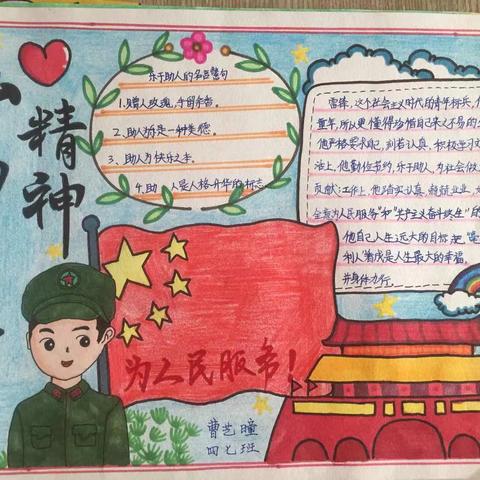 精神
乐于助人的名言警句
1.赠人玫瑰,手留余香。
2、助人为是一种美德。
3、助人为快乐之本。
4、助 人是人格升华的标志
雷锋,这个社会主义时代的青年标兵,
童年,所以更懂得珍惜自己来之不易的
他严格要求自己,刻苦认真,积极学习
活上,他勤俭节约,乐于助人,为社会做
贡献;工作上,他踏实认真,兢兢业业,
全意为人民服务"和"共产主义奋斗终生"的
他自己人生远大的目标,把
利人看成是人生最大的幸福,
并身体力行。
为人民服务!
曹艺瞳
四七班